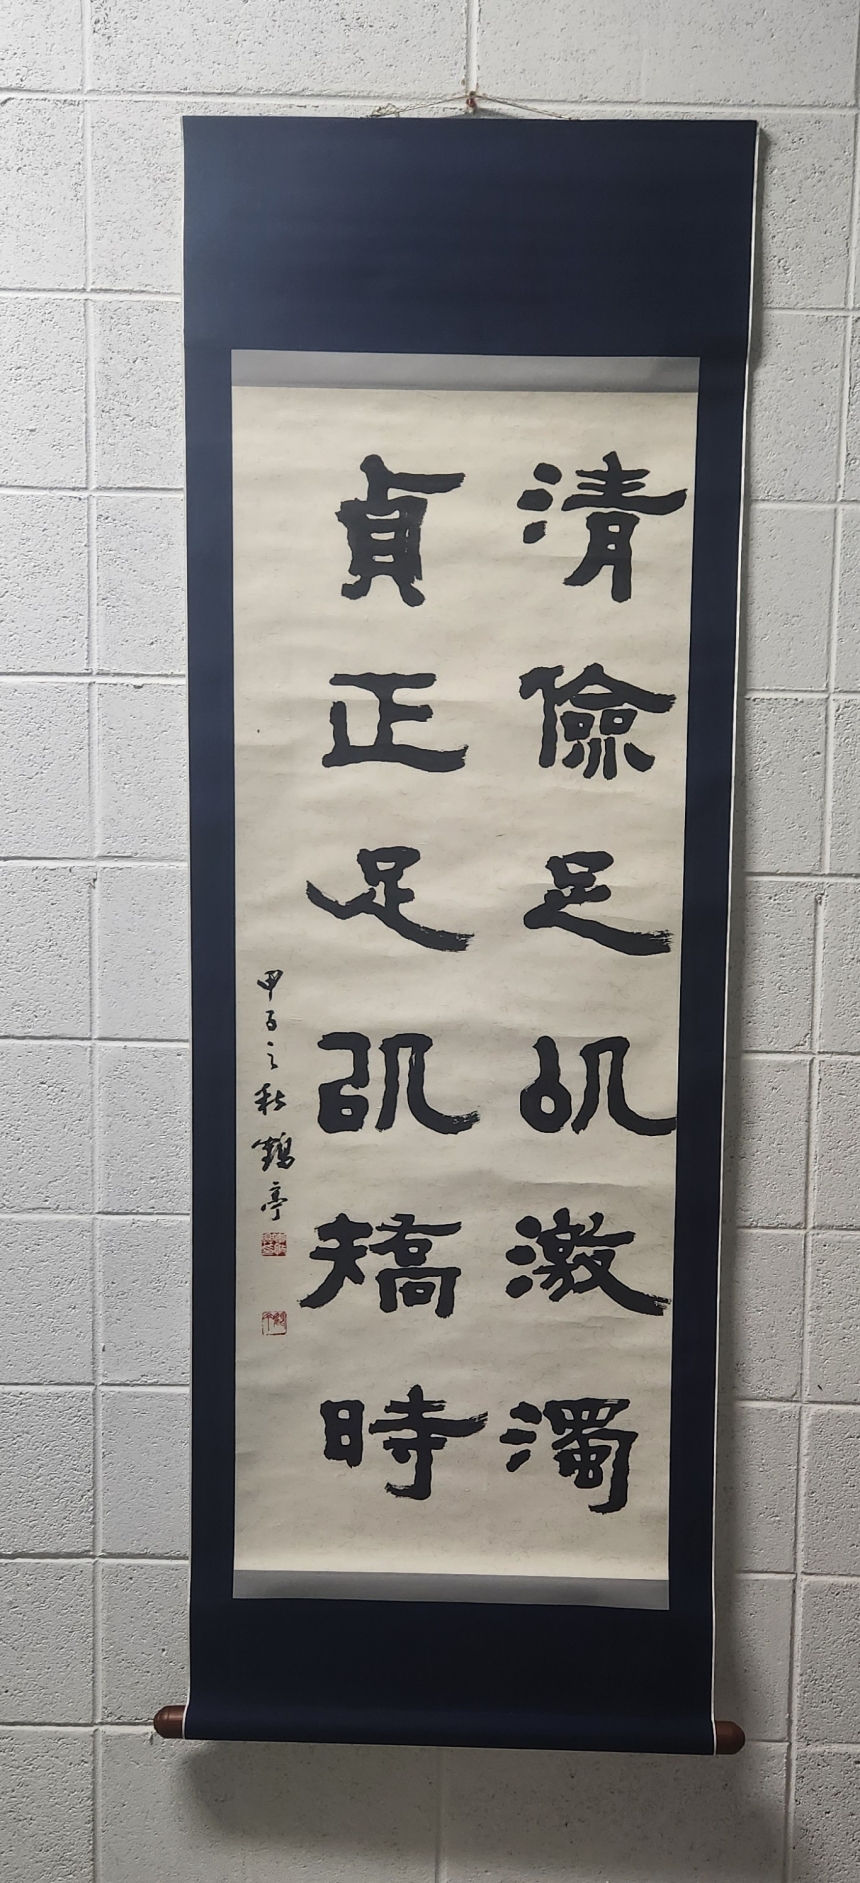 清儉足以激濁
貞正足以矯時
甲子之秋 鶴亭